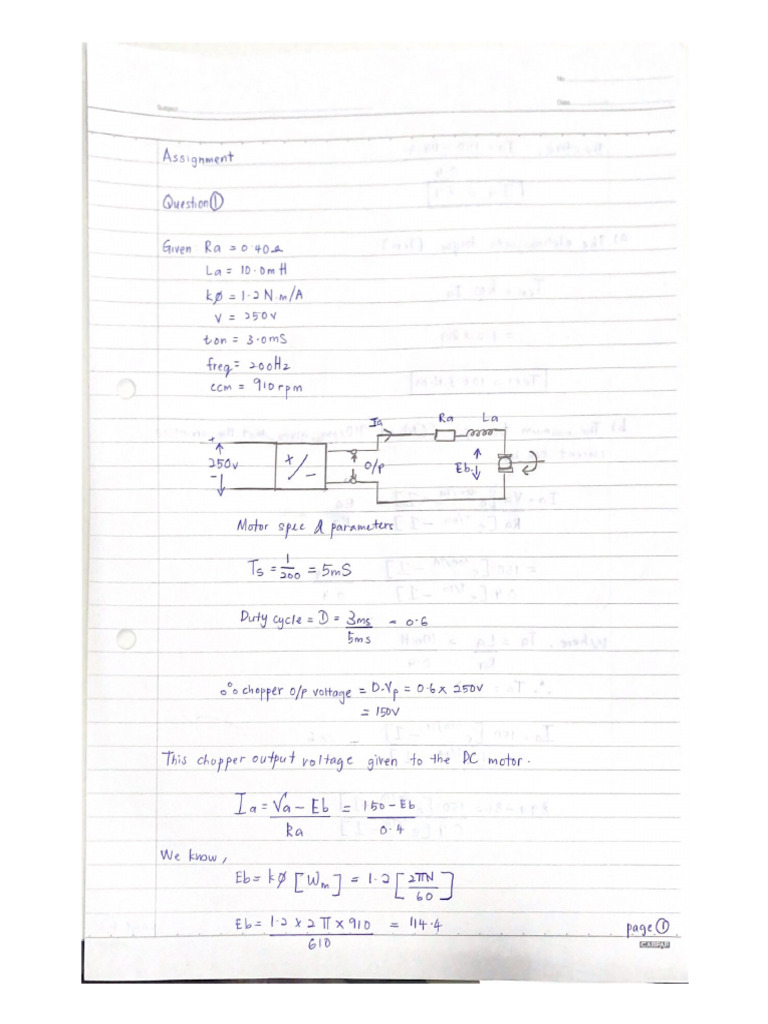 No.
Subject
Date
Assignment
Question ①
Given Ra = 0.40Ω
La = 10.0mH
kø = 1.2 N.m/A
V = 250V
ton = 3.0mS
freq = 200Hz
ccm = 910rpm
Ia Ra La
+ 250V - + / - O/P Eb
Motor spec & parameters
Ts = 1/200 = 5mS
Duty cycle = D = 3ms/5ms = 0.6
∴ chopper o/p voltage = D.Vp = 0.6 x 250V
= 150V
This chopper output voltage given to the DC motor.
Ia = Va - Eb / Ra = 150 - Eb / 0.4
We know,
Eb = kø [Wm] = 1.2 [2πN/60]
Eb = 1.2 x 2π x 910 / 610 = 114.4
page ①
CAMPAP